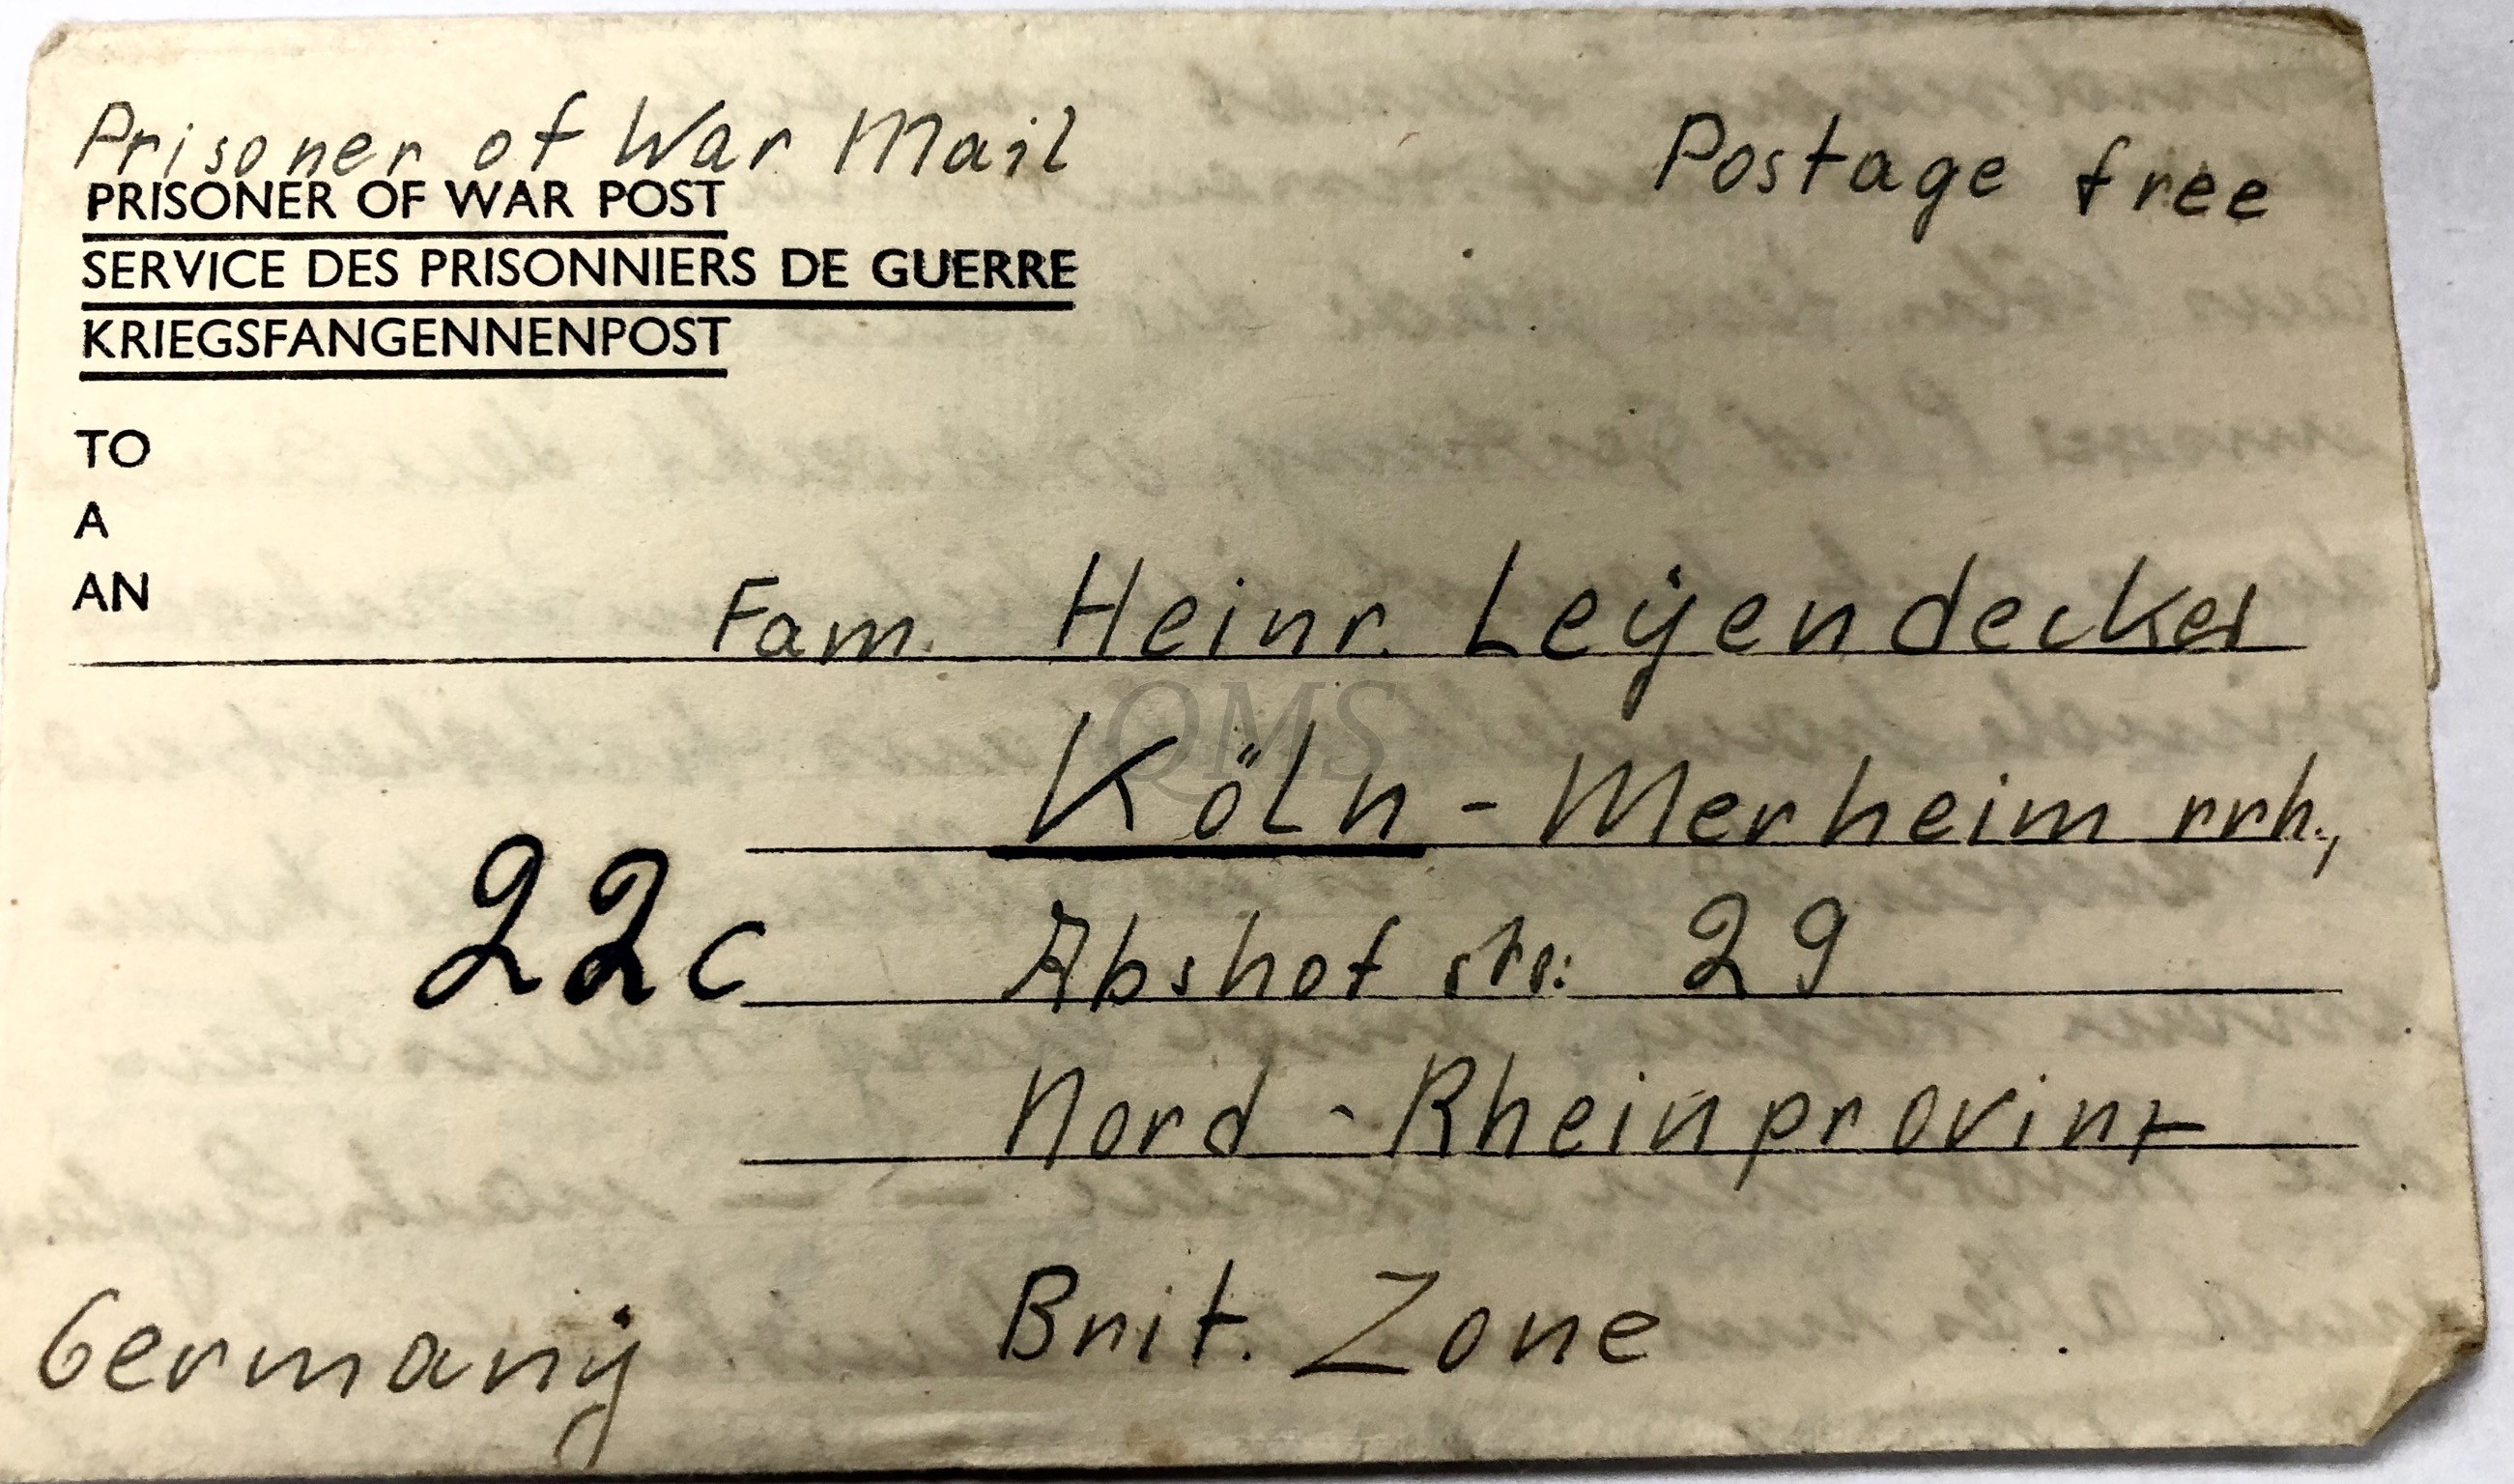 Prisoner of War Mail
Postage free
PRISONER OF WAR POST
SERVICE DES PRISONNIERS DE GUERRE
KRIEGSFANGENNENPOST
TO
A
AN
Fam. Heinr. Leÿendecker
QMS
Köln - Merheim rrh.,
22c
Abshof str: 29
Nord - Rheinprovinz
Germanÿ
Brit. Zone